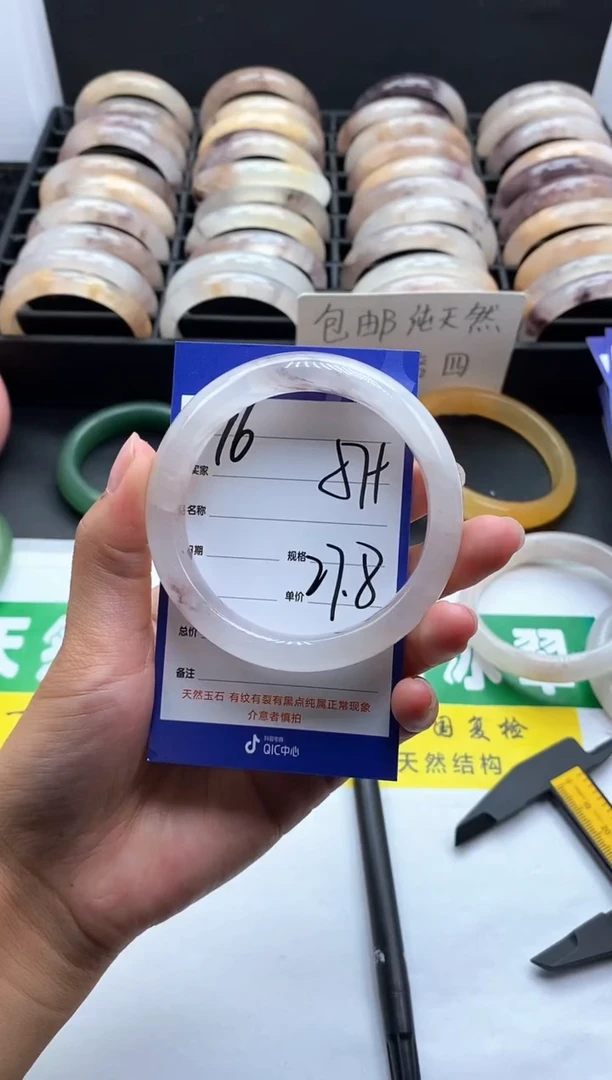 包邮纯天然
四
16
卖家
8H
名称
期
规格
27.8
单价
总价
备注
天然玉石 有纹有裂有黑点纯属正常现象
介意者慎拍
抖音电商
QIC中心
天
冰翠
国复检
天然结构